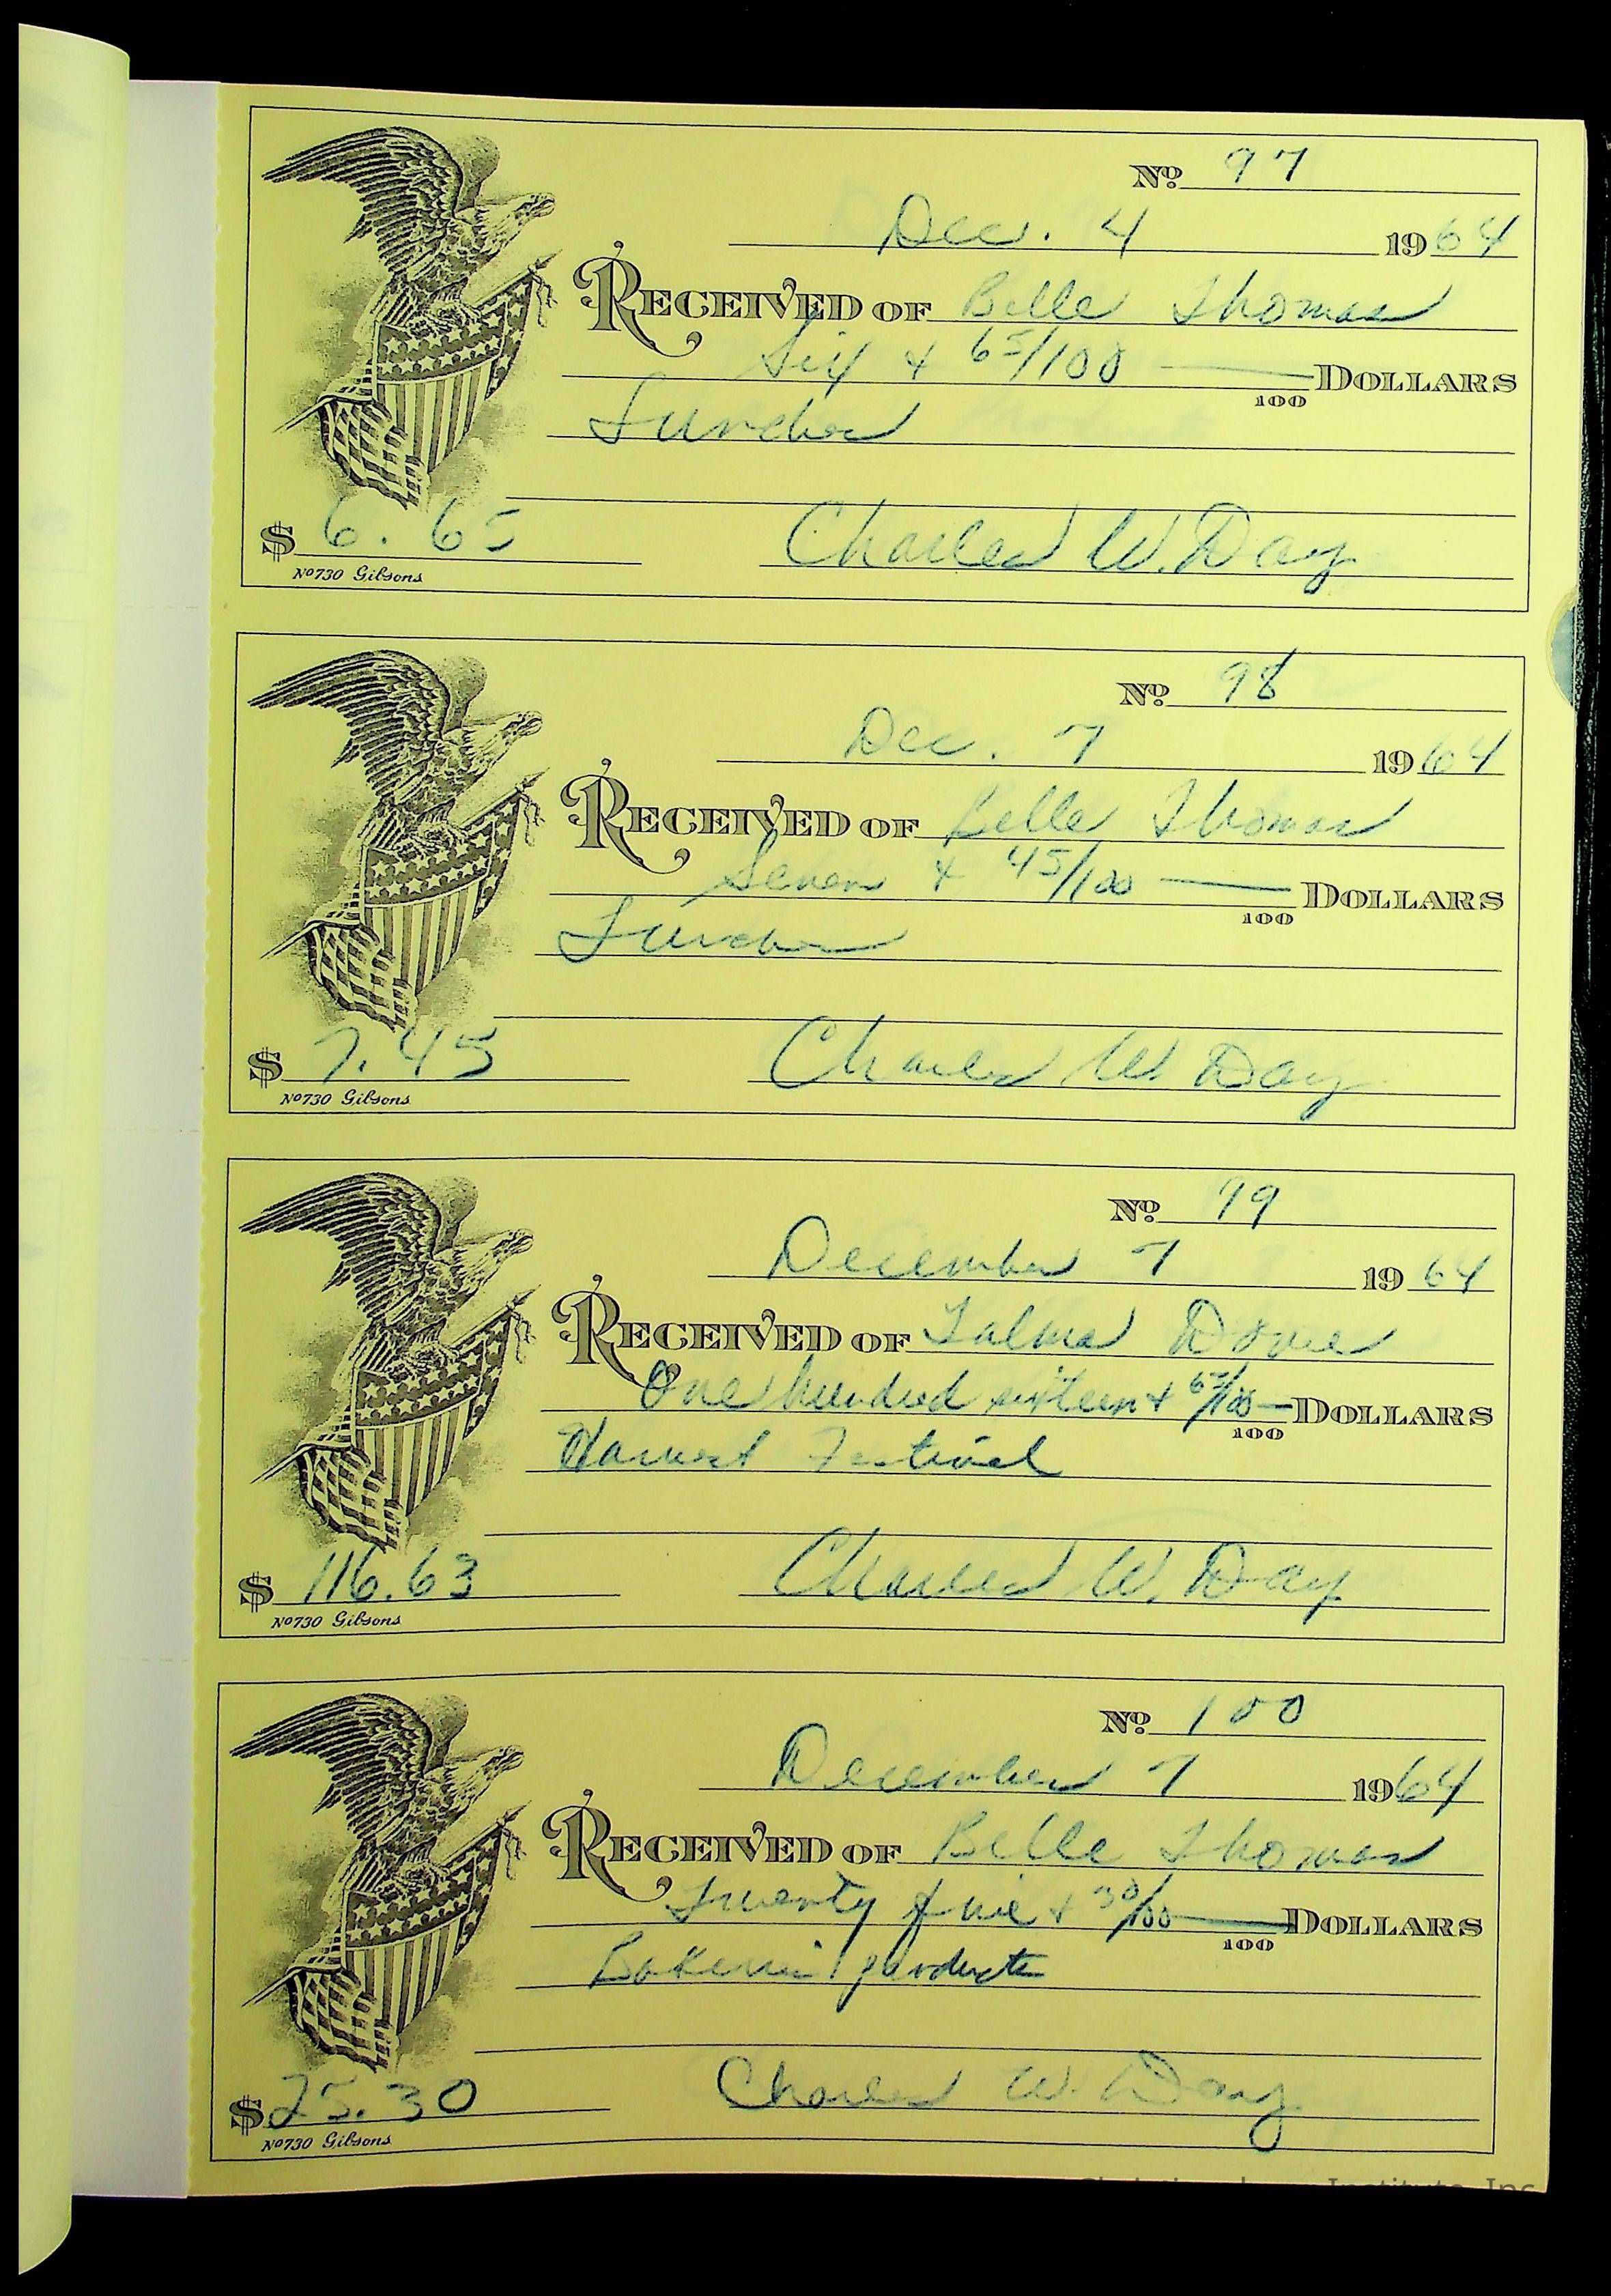 Nº 97
Dec. 4 1964
RECEIVED OF Belle Thomas
Six & 65/100 — DOLLARS
100
Lunches
$ 6.65 Charles W. Day
Nº 730 Gibsons
Nº 98
Dec. 7 1964
RECEIVED OF Belle Thomas
Seven & 45/100 — DOLLARS
100
Lunches
$ 7.45 Charles W. Day
Nº 730 Gibsons
Nº 99
December 7 1964
RECEIVED OF Talma
One hundred sixteen & 63/100 — DOLLARS
100
Harvest Festival
$ 116.63 Charles W. Day
Nº 730 Gibsons
Nº 100
December 7 1964
RECEIVED OF Belle Thomas
Twenty five & 30/100 — DOLLARS
100
products
$ 25.30 Charles W. Day
Nº 730 Gibsons
Institute, Inc